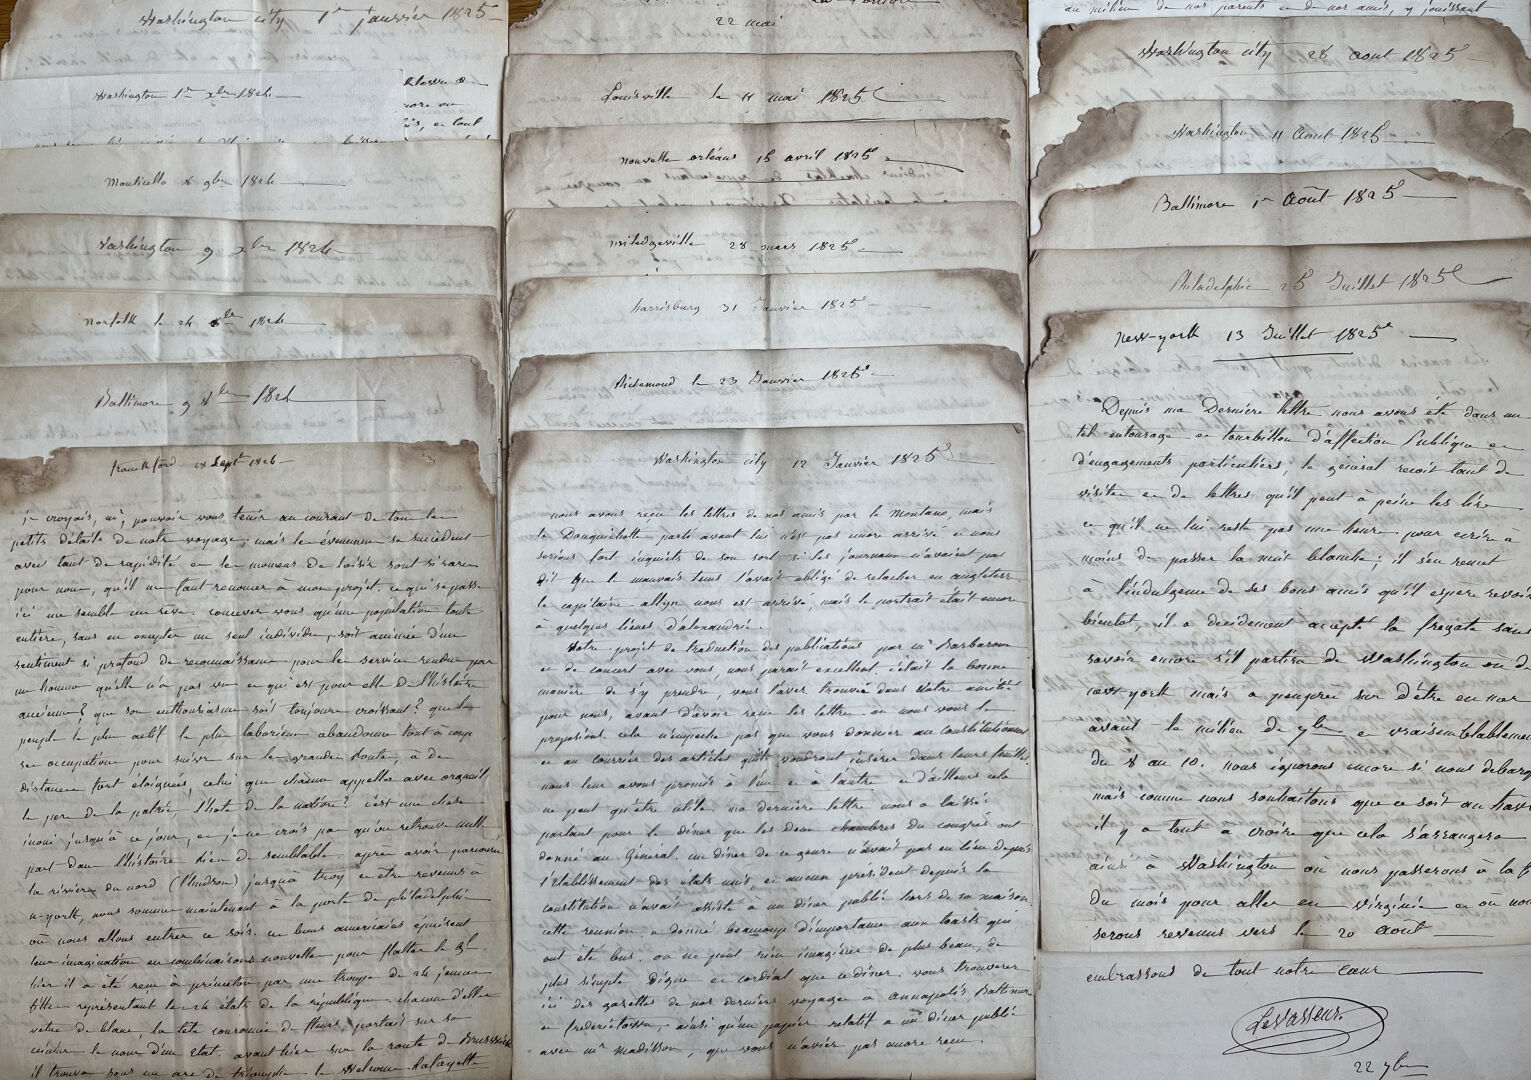 Washington city 1er janvier 1825
Washington 1er xbre 1824
Monticello 8 9bre 1824
Washington 9 xbre 1824
Norfolk le 24 8bre 1824
Baltimore 9 8bre 1824
frankford 28 Sept 1824
je croyais, mr, pouvoir vous tenir au courant de tous les
petits détails de notre voyage, mais les évènemens se succèdent
avec tant de rapidité et les momens de loisir sont si rares
pour nous, qu'il me faut renoncer à mon projet. ce qui se passe
ici me semble un rêve. concevez vous qu'une population toute
entière, sans en excepter un seul individu, soit animée d'un
sentiment si profond de reconnaissance pour les services rendus par
un homme qu'elle n'a pas vu et qui est pour elle de l'histoire
ancienne? que son enthousiasme soit toujours croissant? que le
peuple le plus actif le plus laborieux abandonne tout à coup
ses occupations pour suivre sur les grandes routes, à de
distances fort éloignées, celui que chacun appelle avec orgueil
le père de la patrie l'hote de la nation? c'est une chose
inouie jusqu'à ce jour, et je ne crois pas qu'on retrouve nulle
part dans l'histoire rien de semblable. après avoir parcouru
la rivière du nord (l'hudson) jusqu'à troy et être revenus à
n-york, nous sommes maintenant à la porte de philadelphie
où nous allons entrer ce soir. ces bons américains épuisent
leur imagination en combinaisons nouvelles pour flatter le gl
hier il a été reçu à princeton par une troupe de 24 jeunes
filles représentant les 24 états de la république. chacune d'elles
vetue de blanc, la tête couronnée de fleurs, portait sur sa
ceinture le nom d'un etat. avant hier sur la route de Brunswick
il trouva sous un arc de triomphe le Welcome Lafayette
22 mai
Louisville le 11 mai 1825
nouvelle orléans 15 avril 1825
Miledgeville 28 mars 1825
harrisburg 31 Janvier 1825
Richemond le 23 Janvier 1825
Washington city 12 Janvier 1825
nous avons reçu les lettres de nos amis par le Montano, mais
le Donquichotte parti avant lui n'est pas encore arrivé et nous
serions fort inquiets de son sort si les journaux n'avaient pas
dit que le mauvais tems l'avait obligé de relacher en angleterre
le capitaine allyn nous est arrivé, mais le portrait était encore
à quelques lieues d'alexandrie.
Votre projet de traduction des publications par mr Barbaroux
et de concert avec vous, nous parait excellent, c'était la bonne
manière de s'y prendre, vous l'avez trouvée dans votre amitié
pour nous, avant d'avoir reçu les lettres où nous vous le
proposions. cela n'empêche pas que vous donniez au Constitutionnel
et au courrier des articles qu'ils voudront insérer dans leurs feuilles
nous leur avons promis à l'un et à l'autre et d'ailleurs cela
ne peut qu'être utile. ma dernière lettre nous a laissés
partant pour le diner que les deux chambres du congrès ont
donné au Général. un diner de ce genre n'avait pas eu lieu depuis
l'établissement des états unis, et aucun président depuis la
constitution n'avait assisté à un diner public hors de sa maison
cette réunion a donné beaucoup d'importance aux toasts qui
ont été bus. on ne peut rien imaginer de plus beau, de
plus simple digne et cordial que ce diner. vous trouverez
ici des gazettes de nos derniers voyages à annapolis Baltimore
et frederictown, ainsi qu'un papier relatif à un diner public
avec mr Madisson, que vous n'aviez pas encore reçu.
au milieu de nos parents et de nos amis, y jouissant
Washington city 28 aout 1825
Washington 11 Aout 1825
Baltimore 1er Août 1825
Philadelphie 25 Juillet 1825
New-york 13 Juillet 1825
Depuis ma Dernière lettre nous avons été dans un
tel entourage et tourbillon d'affection Publique et
d'engagements particuliers, le général reçoit tant de
visites et de lettres qu'il peut à peine les lire
et qu'il ne lui reste pas une heure pour ecrire à
moins de passer la nuit blanche; il s'en remet
à l'indulgence de ses bons amis qu'il espere revoir
bientôt, il a decidement accepté la fregate sans
savoir encore s'il partira de Washington ou de
new-york mais à peuprès sur d'être en mer
avant le milieu de 7bre et vraisemblablement
du 8 au 10. nous ignorons encore si nous debarq
mais comme nous souhaitons que ce soit au hav
il y a tout à croire que cela s'arrangera
ainsi à Washington où nous passerons à la f
Du mois pour aller en virginie et où nous
serons revenus vers le 20 août
embrassons de tout notre coeur
LeVasseur.
22 7bre